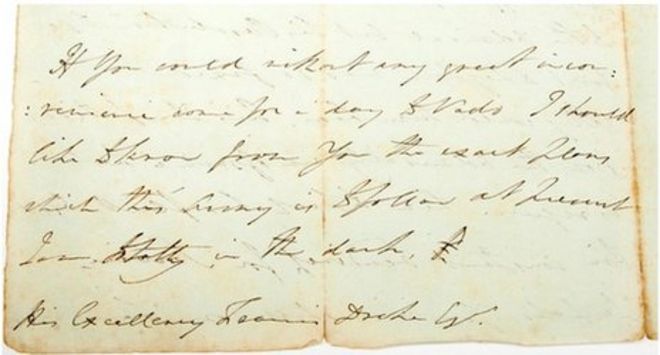 If You could without any great incon:
:venience come for a day to Vado I should
like to know from You the exact plans
which this Army is to follow at present
I am totally in the dark.
His Excellency Francis Drake Esqr.